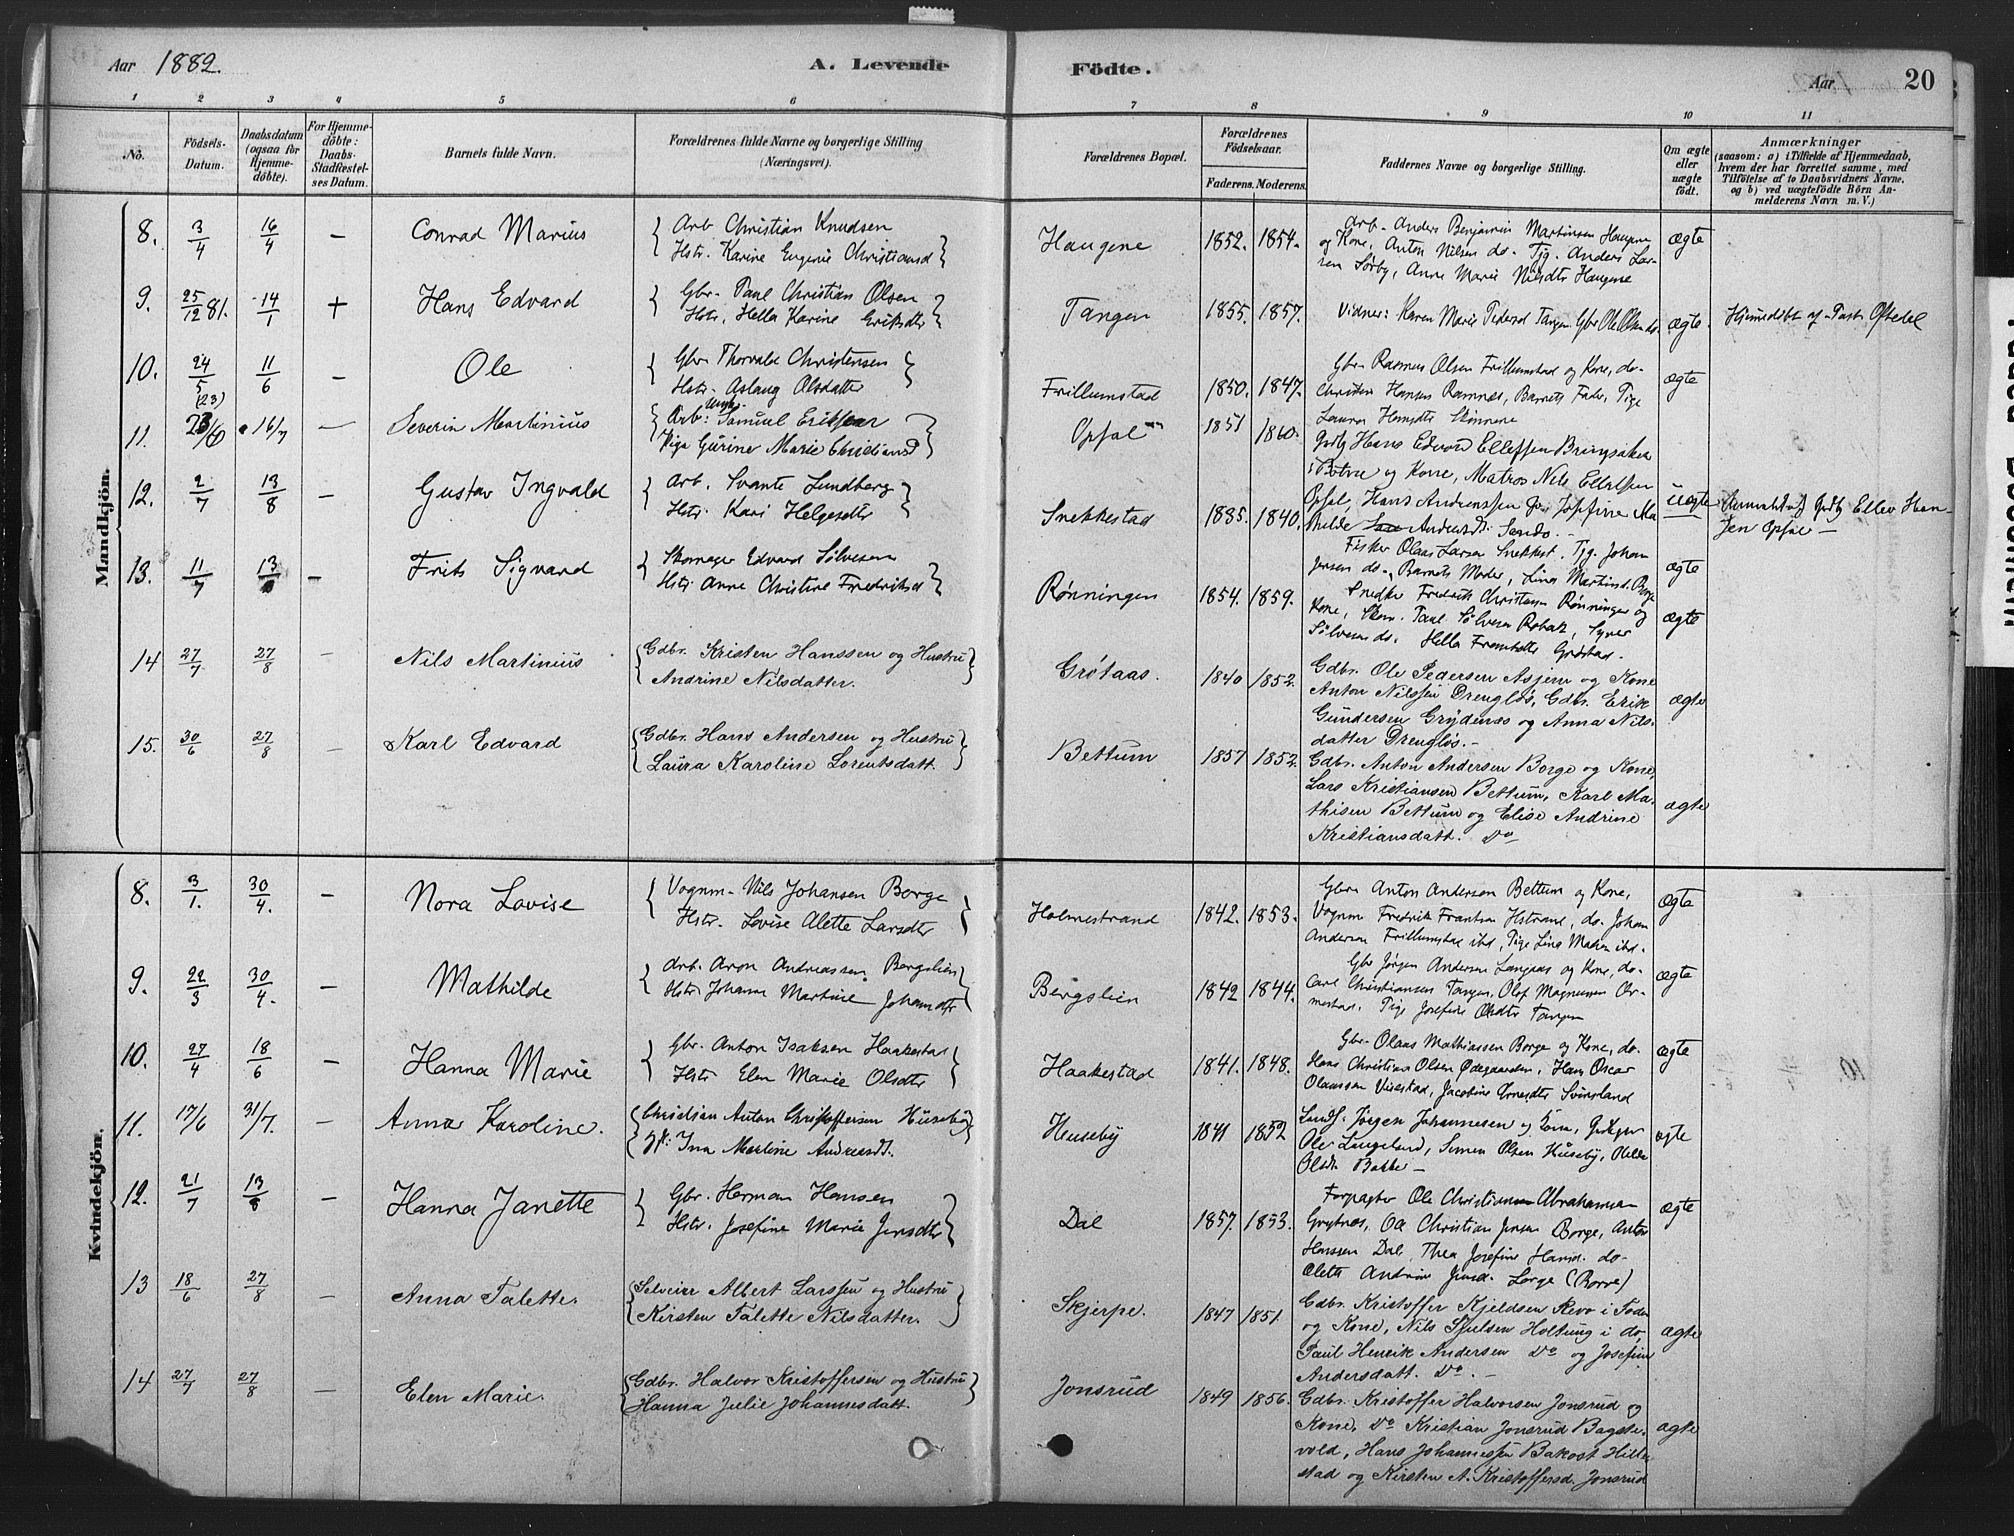 Aar 1882.
A. Levende Födte.
Aar
20
1 2 3 4 5 6 7 8 9 10 11
No.
Födsels-Datum.
Daabsdatum (ogsaa for Hjemme-döbte).
For Hjemme-döbte: Daabs-Stadfæstel-ses Datum.
Barnets fulde Navn.
Forældrenes fulde Navne og borgerlige Stilling (Næringsvei).
Forældrenes Bopæl.
Forældrenes Födselsaar.
Faderens. Moderens.
Faddernes Navne og borgerlige Stilling.
Om ægte eller uægte födt.
Anmærkninger
(saasom: a) i Tilfælde af Hjemmedaab,
hvem der har forrettet samme, med
Tilföielse af to Daabsvidners Navne,
og b) ved uægtefödte Börn An-
melderens Navn m. V.)
Mandkjön.
8. 3/4 16/4 — Conrad Marius
Arb. Christian Knudsen
Hstr. Karine Eugenie Christiansd
Haugene 1852. 1854.
Arb. Anders Benjamin Martinsen Haugene
og Kone, Anton Nilsen do. Tjg. Anders Lar-
sen Sörby, Anne Marie Nilsdtr Haugene
ægte
9. 25/12 81. 14/1 + Hans Edvard
Gbr. Paul Christian Olsen
Hstr. Hella Karine Eriksdtr
Tangen 1855. 1857.
Vidner: Karen Marie Pedersd Tangen Gbr Ole Olsen do.
ægte.
Hjemmedöbt af Past. Oftedal
10. 24/5 11/6 — Ole
Gbr Thorvald Christensen
Hstr. Aslaug Olsdatter
Frillumstad 1850. 1847.
Gbr. Rasmus Olsen Frillumstad og Kone, do.
Christian Hansen Ramnes, Barnets Fader, Pige
Laura Hansdtr
ægte
11. (23) 23/6 16/7 — Severin Martinius
Arb: Ungk. Samuel Eriksen
Pige Gurine Marie Christiansd
Opsal 1851 1860.
Gdbr Hans Edvard Ellefsen Bringaker
i Botne og Kone, Matros Nils Ellefsen
Opsal, Hans Andreassen Josefine Ma-
thilde Andersd: Sando.
uægte
Ellev Han-
sen Opsal —
12. 2/7 13/8 — Gustav Ingvald
Arb. Svante Lundberg
Hstr. Kari Helgesdtr
Snekkestad 1835. 1840.
Fisker Olaus Larsen Snekkest. Tjg. Johan
Jensen do., Barnets Moder, Lina Martinsd. Borge
ægte
13. 11/7 13/8 — Frits Sigvard
Skomager Edvard Sölvesen
Hstr. Anne Christine Fredriksd
Rønningen 1854. 1859.
Snedker Fredrik Christensen Rønningen og
Kone, Skom. Paul Sölvesen
Sölvesen do. Hella
ægte
14 27/7 27/8 — Nils Martinius
Gdbr. Kristen Hanssen og Hustru
Andrine Nilsdatter.
Grötaas. 1840 1852.
Gdbr. Ole Pedersen Asjem og Kone
Anton Nilssen Drengløs, Gdbr. Erik
Gundersen Grydenæs og Anna Nils-
datter Drengløs.—
ægte
15. 30/6 27/8 — Karl Edvard
Gdbr. Hans Andersen og Hustru
Laura Karoline Lorentsdatt.
Bettum 1857 1852.
Gdbr. Anton Andersen Borge og Kone,
Lars Kristiansen Bettum, Karl Ma-
thisen Bettum og Elise Andrine
Kristiansdatt. Do
ægte
Kvindekjön.
8. 3/1. 30/4. — Nora Lovise
Vognm. Nils Johansen Borge
Hstr. Lovise Alette Larsdtr
Holmestrand 1842. 1853.
Gbr. Anton Andersen Bettum og Kone,
Vognm Fredrik Frantsen Hstrand, do. Johan
Andersen Frillumstad ibd, Pige Lina Madsen ibd.
ægte
9. 22/3 30/4. — Mathilde
Arb. Aron Andreassen Bergslien
Hstr. Johanne Martine Johansdtr
Bergslien 1842 1844.
Gbr Jørgen Andersen Langaas og Kone, do.
Carl Christiansen Tangen, Olof Magnussen Or-
mestad, Pige Josefine Olsdtr Tangen
ægte
10. 27/4 18/6 — Hanna Marie
Gbr. Anton Isaksen Haakestad
Hstr Elen Marie Olsdtr
Haakestad 1841. 1848.
Gbr. Olaus Mathiassen Borge og Kone, do.
Hans Christian Olsen Ødegaarden, Hans Oscar
Olaussen Virkestad, Jacobine Arnesdtr
ægte
11. 17/6 31/7. — Anna Karoline.
Christian Anton Christoffersen Huseby
H: Ina Martine Andreasdt.
Huseby 1841 1852
Jørgen Johannesen og Kone,
Ole Langeland, Simen Olsen Huseby,
Olsdtr Bakke —
ægte
12. 21/7 13/8 — Hanna Janette
Gbr. Herman Hansen
Hstr. Josefine Marie Jensdtr
Dal 1857. 1853.
Forpagter Ole Christian Abrahamsen
Grytnes, Ole Christian Jensen Borge, Anton
Hanssen Dal, Thea Josefine Hansd. do.
Oletta Andrine Jensd. Lorge (Borre)
ægte
13 18/6 27/8 — Anna Talette.
Selveier Albert Larssen og Hustru
Kirsten Talette Nilsdatter.
Skjerpe. 1847 1851.
Gdbr. Kristoffer Kjeldsen Revo i
og Kone, Nils Holtung i do,
Paul Henrik Andersen Do og Josefine
Andersdatt. Do. —
ægte
14 27/7 27/8 — Elen Marie.
Gdbr. Halvor Kristoffersen og Hustru
Hanna Julie Johannesdatt.
Jonsrud 1849 1856.
Gdbr. Kristoffer Halvorsen Jonsrud og
Kone, Do Kristian Jonsrud Bagste-
vold, Hans Johannessen Bakost Hille-
stad og Kirsten A. Kristoffersd. Jonsrud
ægte